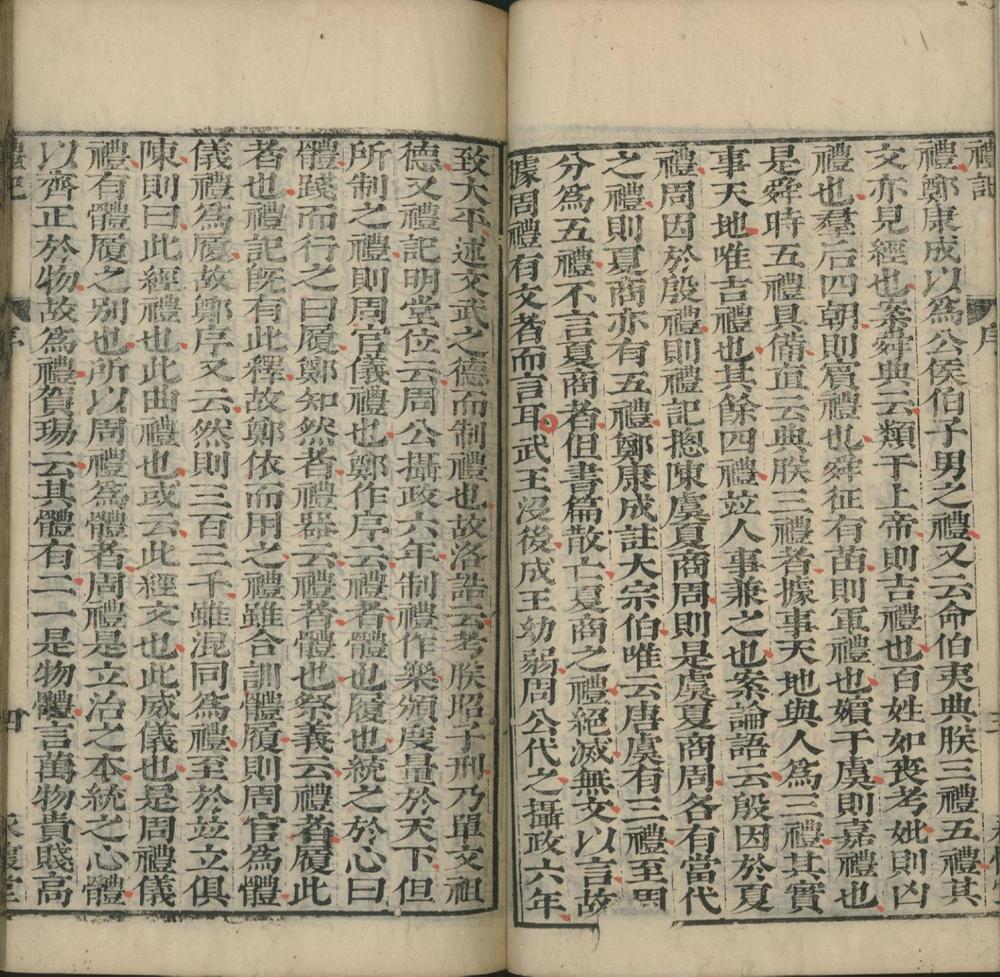 禮記 序
禮鄭康成以爲公侯伯子男之禮又云命伯夷典朕三禮五禮其
文亦見經也案舜典云類于上帝則吉禮也百姓如喪考妣則凶
禮也羣后四朝則賓禮也舜征有苗則軍禮也嬪于虞則嘉禮也
是舜時五禮具備直云典朕三禮者據事天地與人爲三禮其實
事天地唯吉禮也其餘四禮並人事兼之也案論語云殷因於夏
禮周因於殷禮則禮記揔陳虞夏商周則是虞夏商周各有當代
之禮則夏商亦有五禮鄭康成註大宗伯唯云唐虞有三禮至周
分爲五禮不言夏商者但書篇散亡夏商之禮絕滅無文以言故
據周禮有文者而言耳武王沒後成王幼弱周公代之攝政六年
致大平述文武之德而制禮也故洛誥云考朕昭子刑乃單文祖
德又禮記明堂位云周公攝政六年制禮作樂頒度量於天下但
所制之禮則周官儀禮也鄭作序云禮者體也履也統之於心曰
體踐而行之曰履鄭知然者禮器云禮者體也祭義云禮者履此
者也禮記旣有此釋故鄭依而用之禮雖合訓體履則周官爲體
儀禮爲履故鄭序又云然則三百三千雖混同爲禮至於並立俱
陳則曰此經禮也此曲禮也或云此經文也此威儀也是周禮儀
禮有體履之別也所以周禮爲體者周禮是立治之本統之心體
以齊正於物故爲禮賀瑒云其體有二一是物體言萬物貴賤高
禮記 序 四